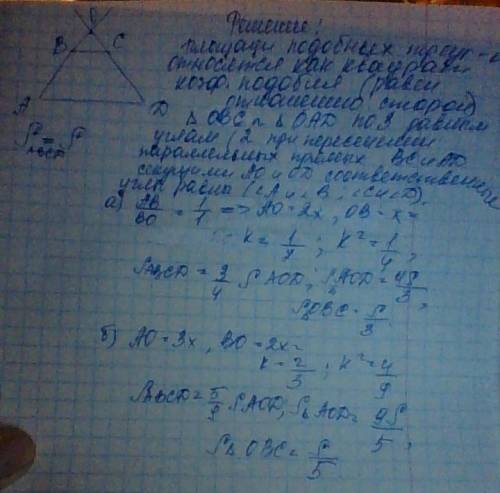 Решение:
площади подобных треуг-в
относятся как квадраты
коэф. подобия (равен
отношению сторон)
O
B C
A D
S ABCD = S
△ OBC ~ △ OAD по 3 равным
углам (2 при пересечении
параллельных прямых BC и AD
секущими AO и OD соответственные
углы равны (∠A и ∠B, ∠C и ∠D).
а) AB/BO = 1/1 => AO = 2x, OB = x =
k = 1/2 ; k² = 1/4 ,
S ABCD = 3/4 S AOD ; S△AOD = 4S/3 ,
S△OBC = S/3
б) AO = 3x, BO = 2x =
k = 2/3 ; k² = 4/9
S ABCD = 5/9 S AOD ; S△ AOD = 9S/5 ,
S△ OBC = S/5 .